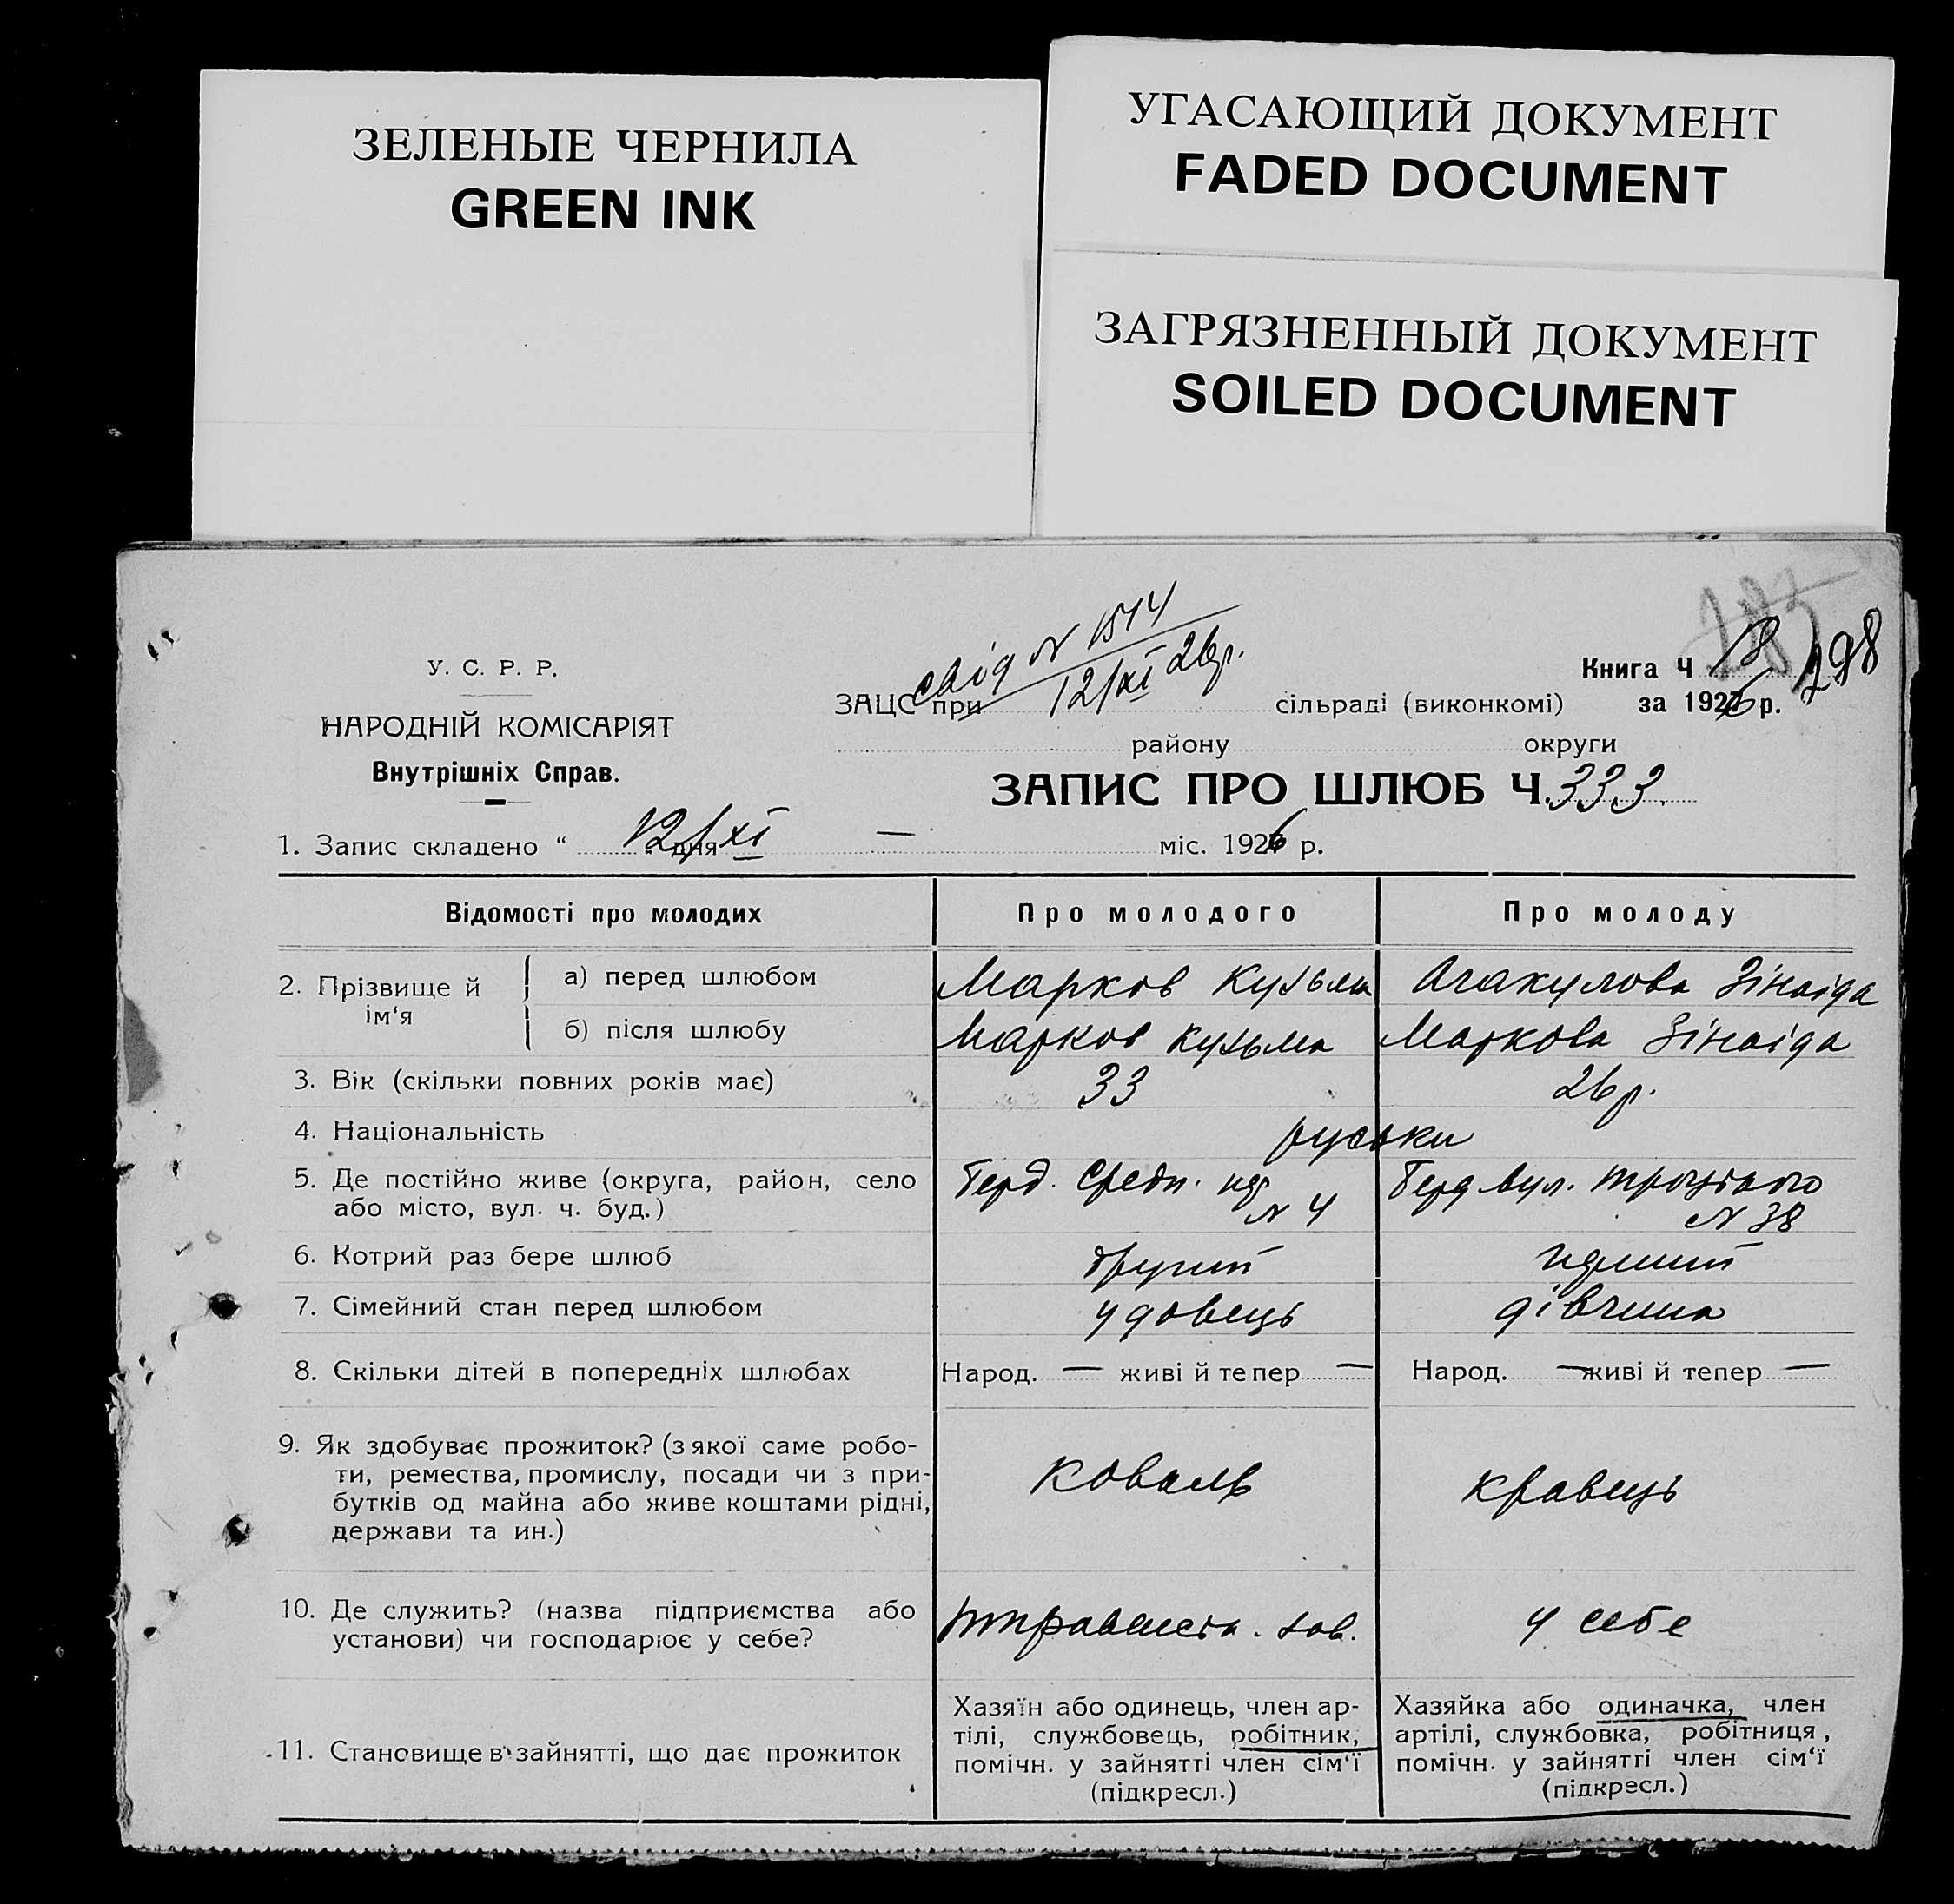 ЗЕЛЕНЫЕ ЧЕРНИЛА
GREEN INK
УГАСАЮЩИЙ ДОКУМЕНТ
FADED DOCUMENT
ЗАГРЯЗНЕННЫЙ ДОКУМЕНТ
SOILED DOCUMENT
У. С. Р. Р.
НАРОДНІЙ КОМІСАРІЯТ
Внутрішніх Справ.
свід N 1514
12/XI 26р.
ЗАЦС при сільраді (виконкомі)
району округи
Книга Ч 18
298
за 1926 р.
ЗАПИС ПРО ШЛЮБ Ч. 333
1. Запис складено “ 12/XI дня — міс. 1926 р.
Відомості про молодих Про молодого Про молоду
2. Прізвище й ім‘я
а) перед шлюбом Марков Кузьма Агакулова Зінаіда
б) після шлюбу Марков Кузьма Маркова Зінаіда
3. Вік (скільки повних років має) 33 26 р.
4. Національність руськи
5. Де постійно живе (округа, район, село або місто, вул. ч. буд.)
Берд. Средн. N 4
Берд вул. Троцького N 38
6. Котрий раз бере шлюб другий
7. Сімейний стан перед шлюбом удовець дівчина
8. Скільки дітей в попередніх шлюбах Народ. — живі й тепер — Народ. — живі й тепер —
9. Як здобуває прожиток? (з якої саме робо-
ти, ремества, промислу, посади чи з при-
бутків од майна або живе коштами рідні,
держави та ин.)
Коваль кравець
10. Де служить? (назва підприємства або
установи) чи господарює у себе?
зав. у себе
11. Становище в зайнятті, що дає прожиток
Хазяїн або одинець, член ар-
тілі, службовець, робітник,
помічн. у зайнятті член сім‘ї
(підкресл.)
Хазяйка або одиначка, член
артілі, службовка, робітниця,
помічн. у зайнятті член сім‘ї
(підкресл.)